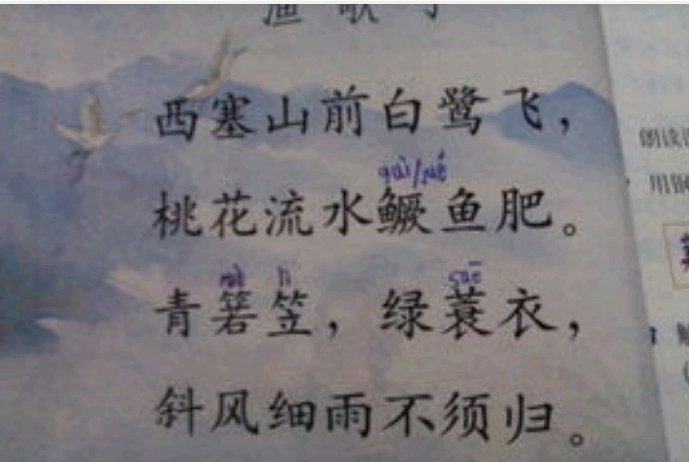 渔歌子
西塞山前白鹭飞，
桃花流水鳜鱼肥。
lì suō
青箬笠，绿蓑衣，
斜风细雨不须归。
朗读